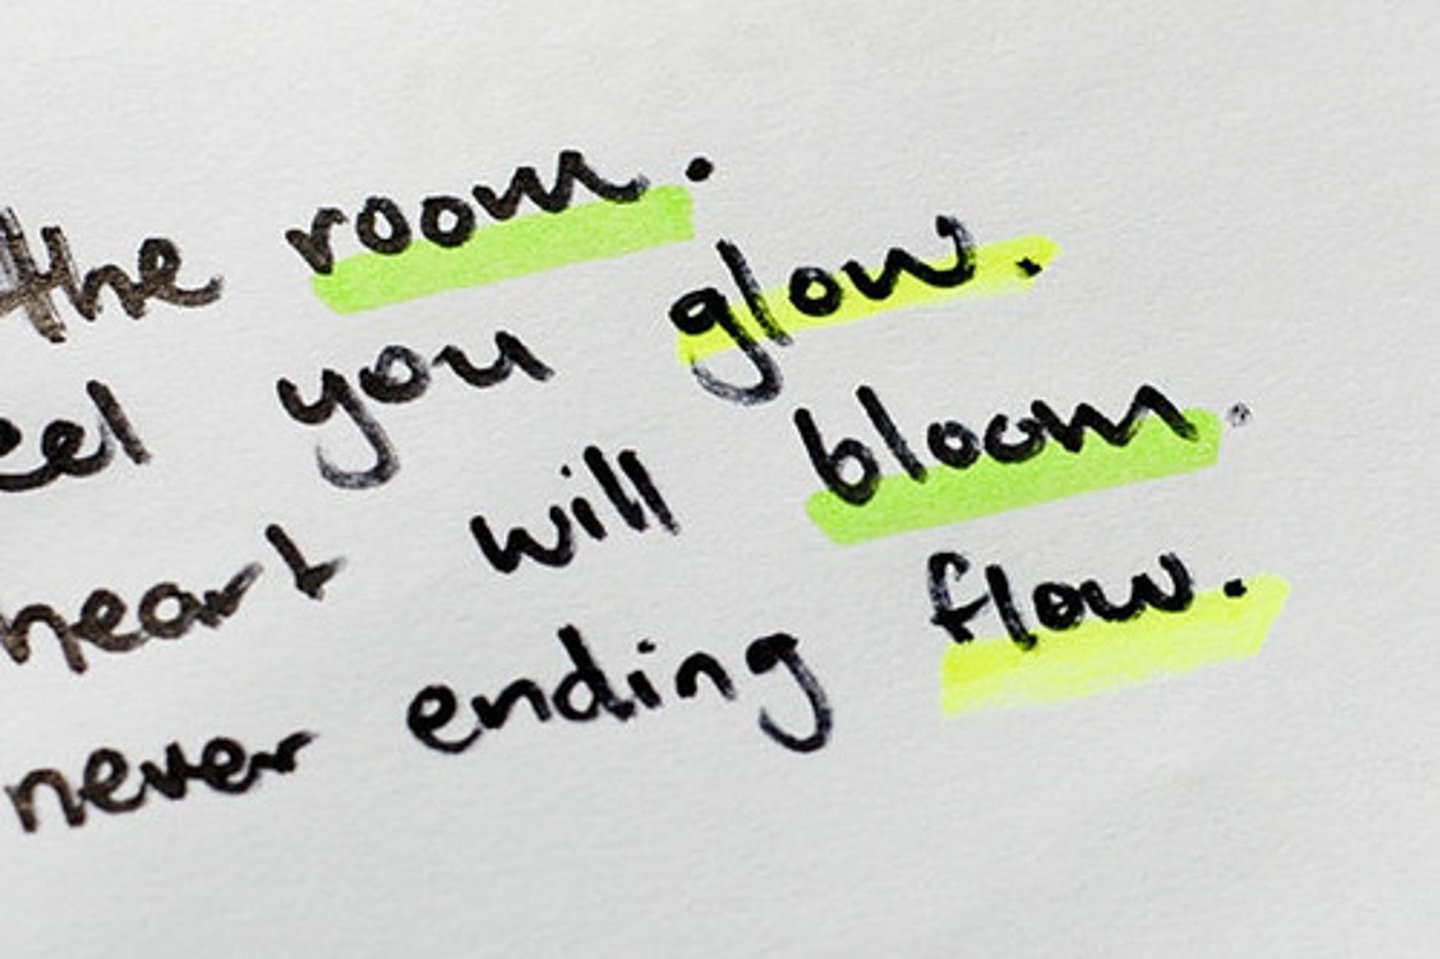 the room.
eel you glow.
heart will bloom.
never ending flow.